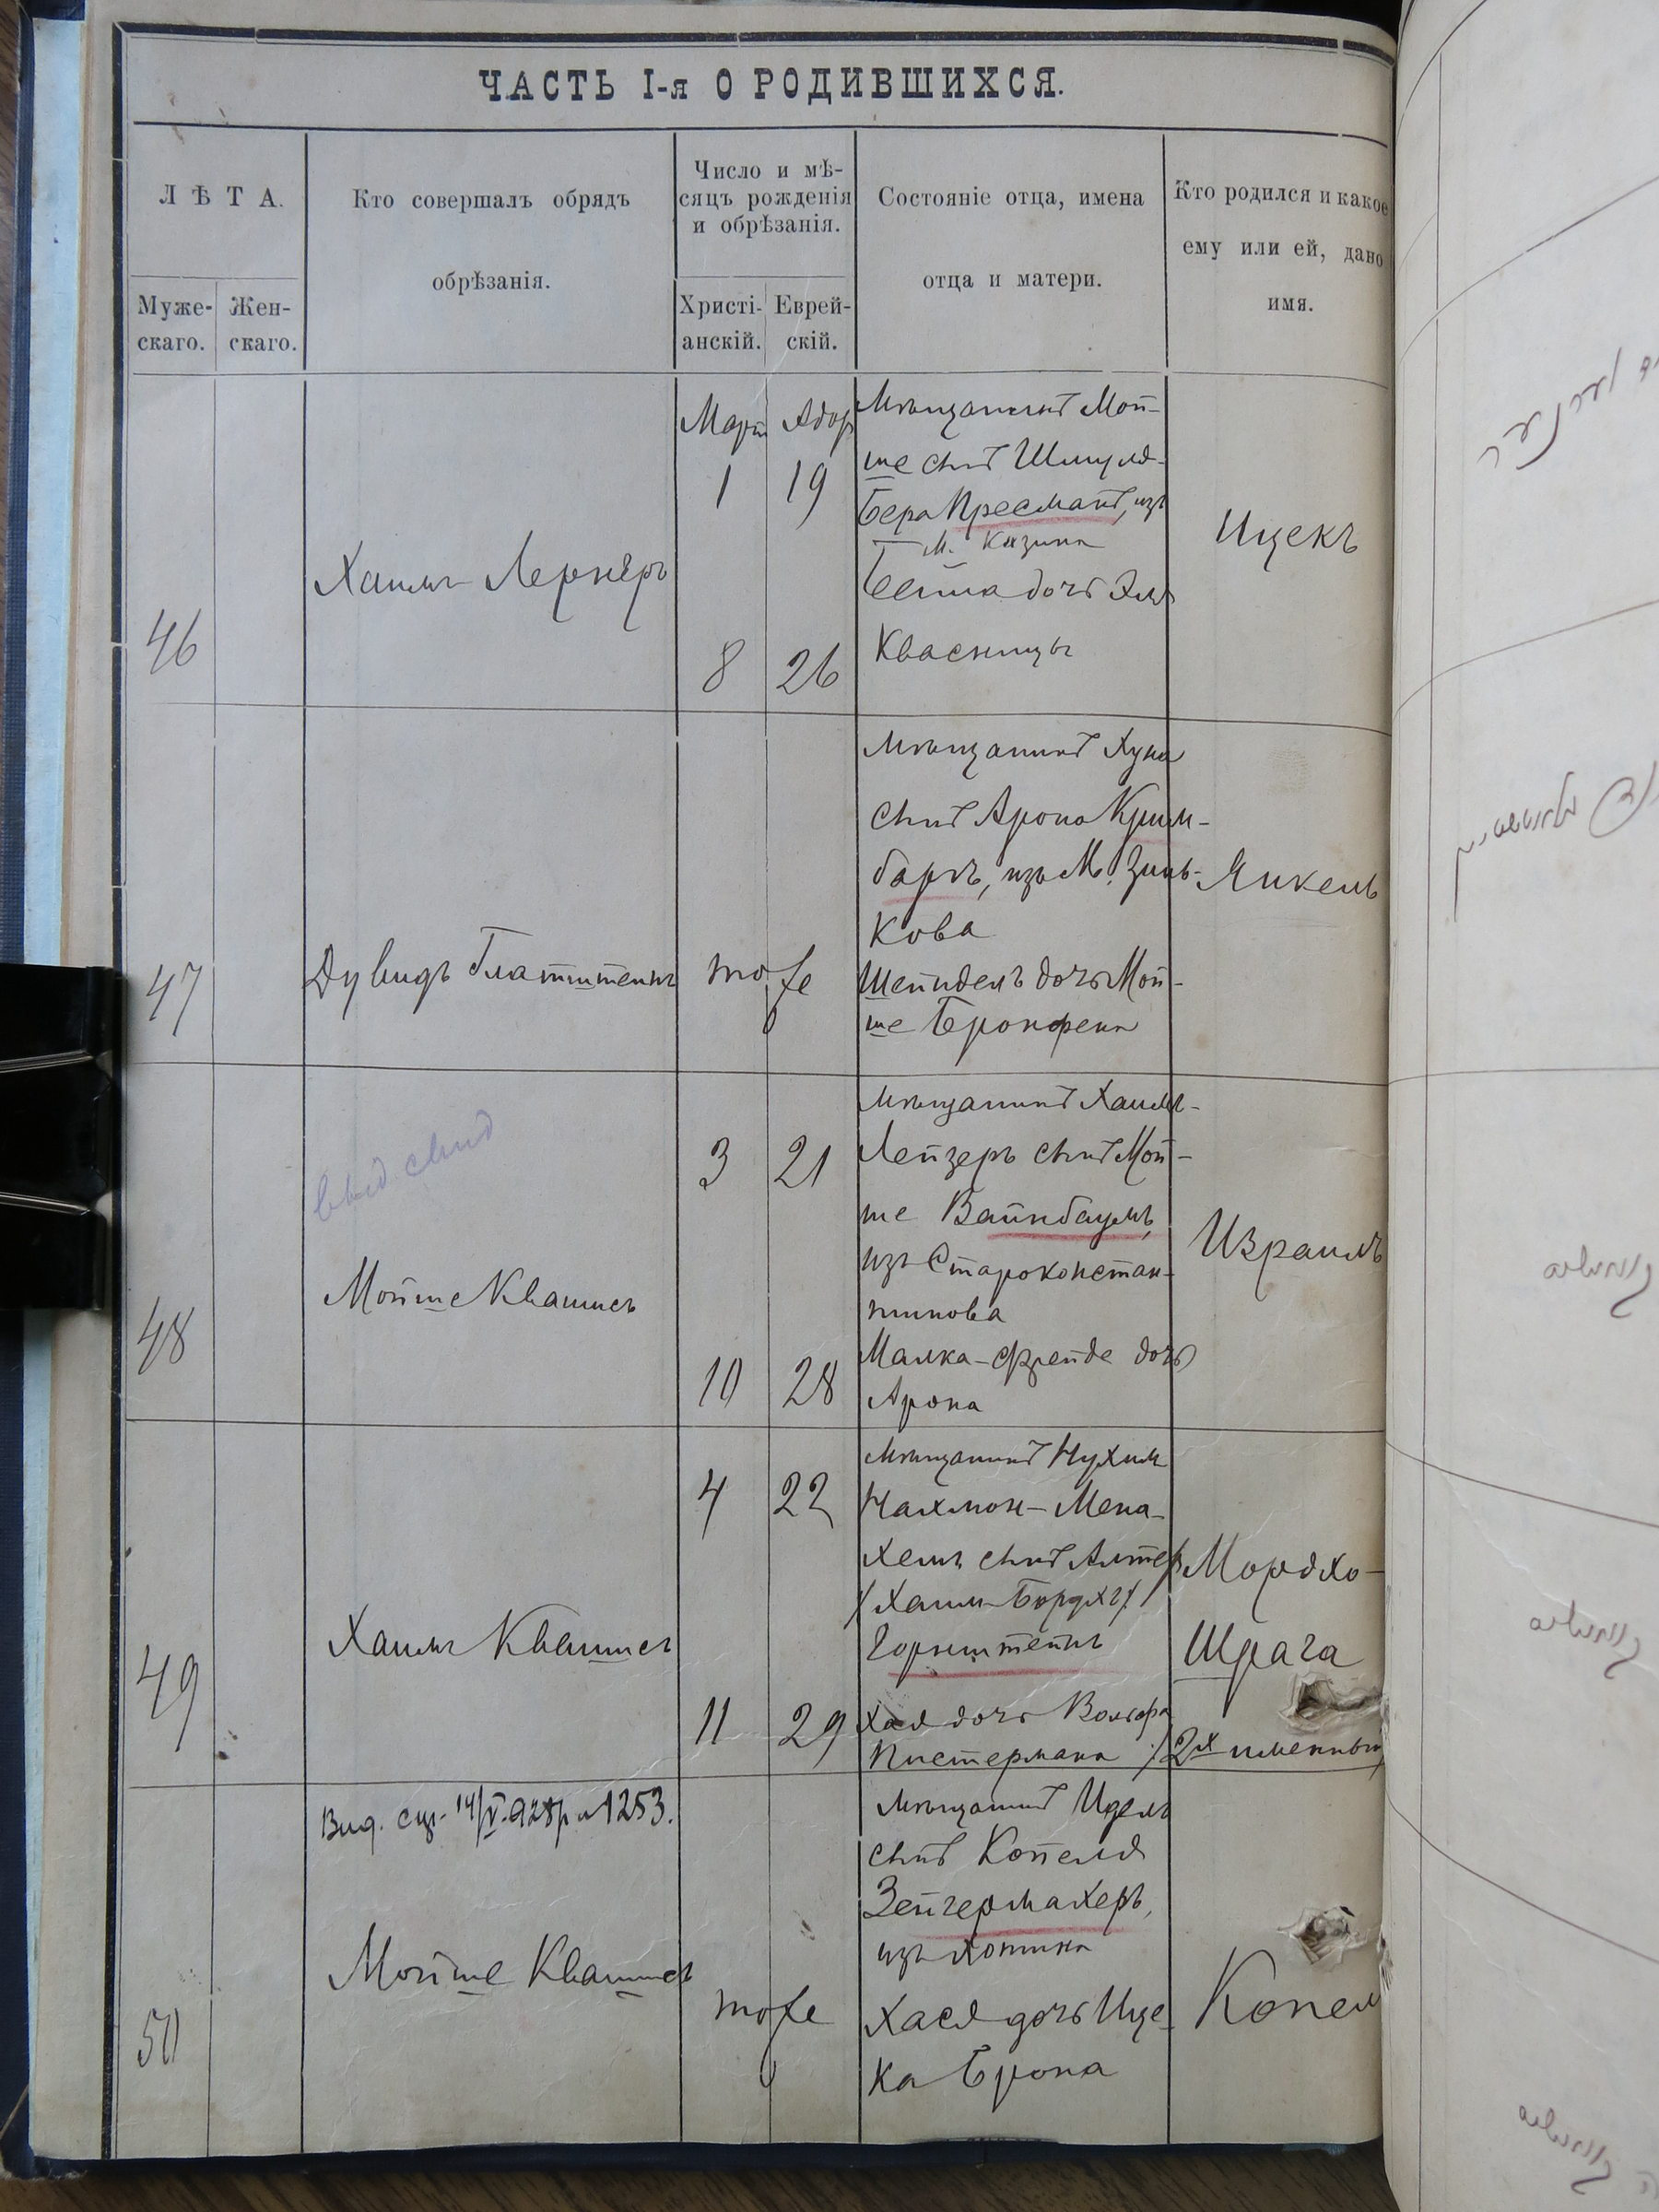 ЧАСТЬ I-я О РОДИВШИХСЯ.
ЛѢТА.
Муже-
скаго.
Жен-
скаго.
Кто совершалъ обрядъ
обрѣзанія.
Число и мѣ-
сяцъ рожденія
и обрѣзанія.
Христі-
анскій.
Еврей-
скій.
Состояніе отца, имена
отца и матери.
Кто родился и какое
ему или ей, дано
имя.
46
Хаимъ Лернеръ
Март Адар
1 19
8 26
Мѣщанинъ Мой-
ше сынъ Шмуля-
Бера Пресманъ, изъ
м.
Бейла дочь Эля
Квасницы
Ицекъ
47
Дувидъ Глатштейнъ
тоже
Мѣщанинъ Хуна
сынъ Арона Крим-
баръ, изъ М. Зинь-
кова
Шейндель дочь Мой-
ше Бронфена
Янкель
48
выд свид
Мойше Квашисъ
3 21
10 28
Мѣщанинъ Хаимъ-
Лейзеръ сынъ Мой-
ше Вайнбаумъ,
изъ Староконстан-
тинова
Малка-Фрейде дочь
Арона
Израиль
49
Хаимъ Квашисъ
4 22
11 29
Мѣщанинъ Нухим
Нахмон-Мена-
хемъ сынъ Алтер
/Хаим-
Горнштейнъ
Хая дочь Вольфа
Пистермана
Мордхо-
Шрага
/2х именный
50
Вид. 14/V-928р №1253.
Мойше Квашисъ
тоже
Мѣщанинъ Идель
сынъ Копеля
Зейгермахеръ,
изъ Хотина
Хася дочь Ице-
ка Брона
Копел